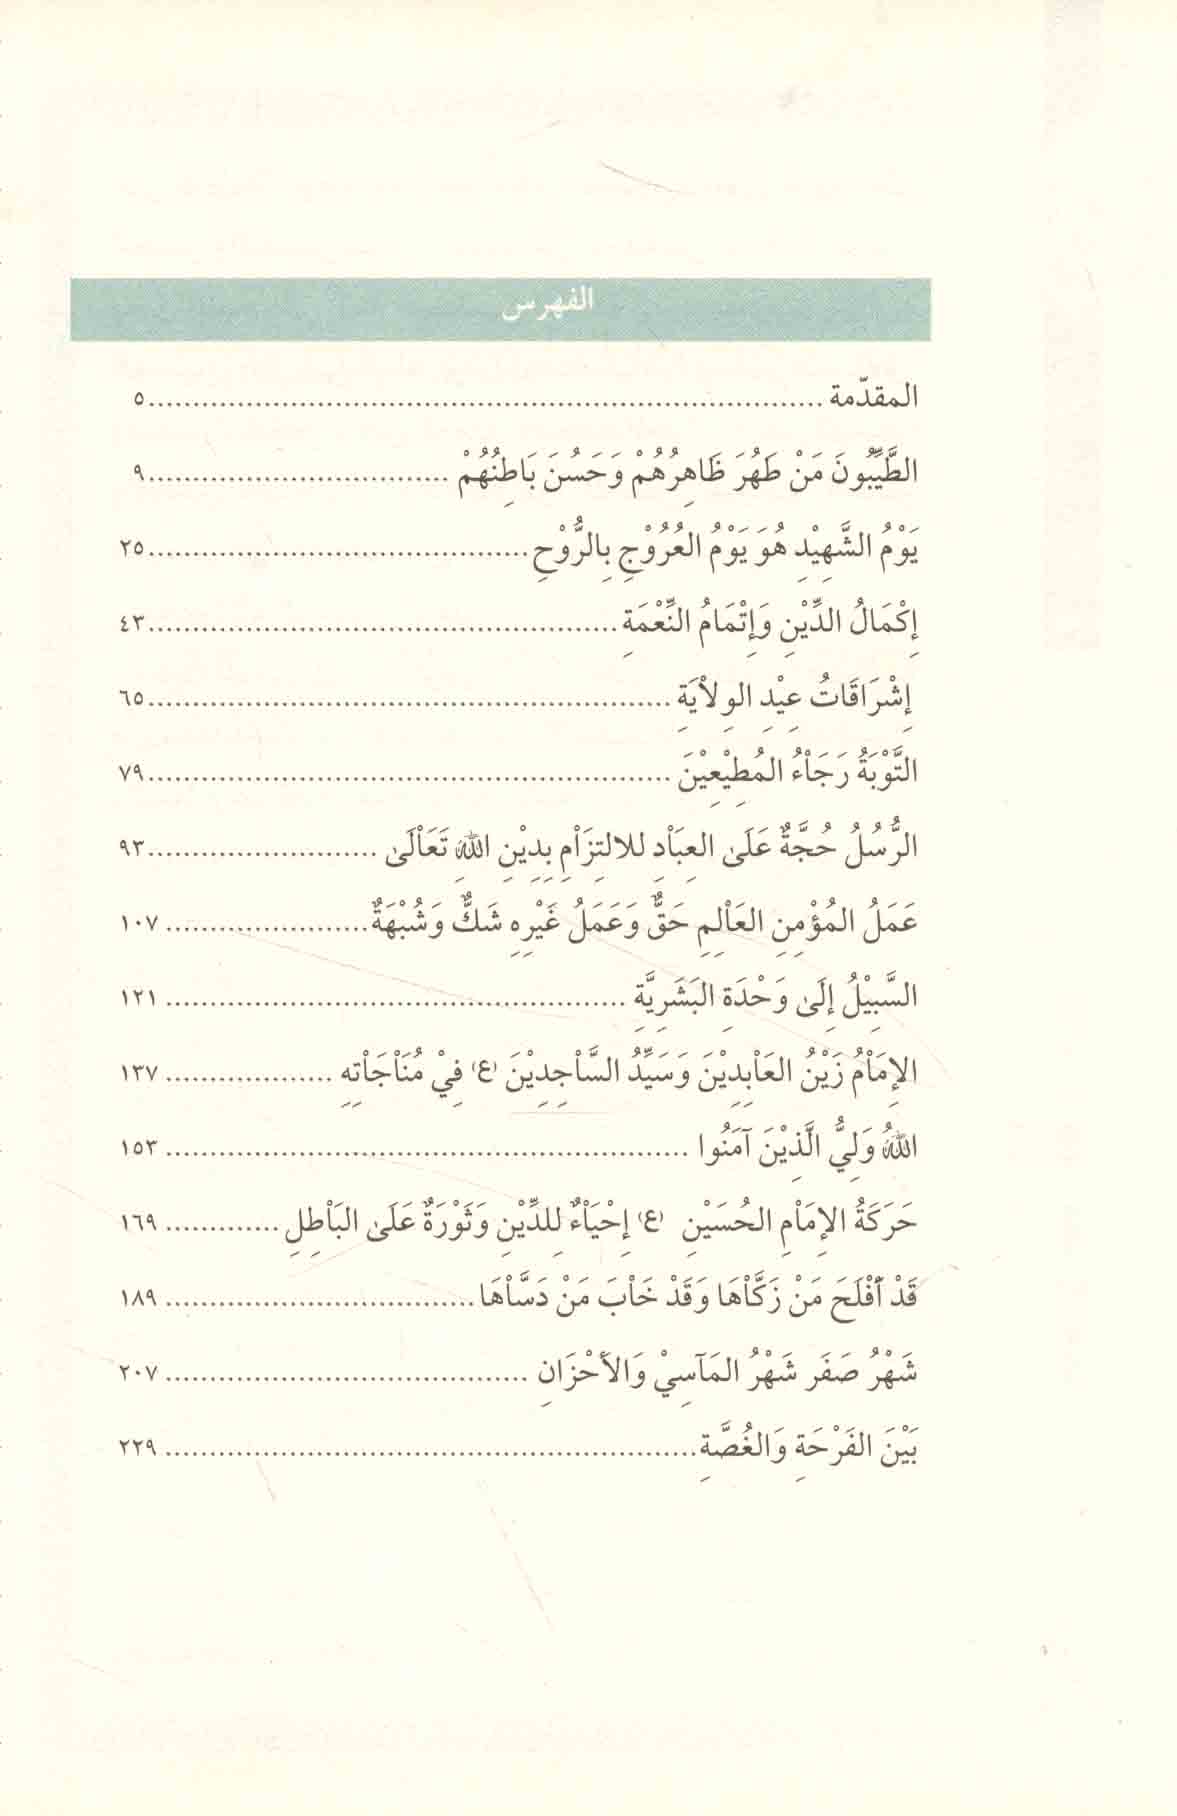 الفهرس
المقدّمة ..... ٥
الطَّيِّبُونَ مَنْ طَهُرَ ظَاهِرُهُمْ وَحَسُنَ بَاطِنُهُمْ ..... ٩
يَوْمُ الشَّهِيْدِ هُوَ يَوْمُ العُرُوْجِ بِالرُّوْحِ ..... ٢٥
إِكْمَالُ الدِّيْنِ وَإِتْمَامُ النِّعْمَةِ ..... ٤٣
إِشْرَاقَاتُ عِيْدِ الوِلاْيَةِ ..... ٦٥
التَّوْبَةُ رَجَاْءُ المُطِيْعِيْنَ ..... ٧٩
الرُّسُلُ حُجَّةٌ عَلَى العِبَاْدِ للالتِزَاْمِ بِدِيْنِ اللهِ تَعَاْلَى ..... ٩٣
عَمَلُ المُؤْمِنِ العَاْلِمِ حَقٌّ وَعَمَلُ غَيْرِهِ شَكٌّ وَشُبْهَةٌ ..... ١٠٧
السَّبِيْلُ إِلَى وَحْدَةِ البَشَرِيَّةِ ..... ١٢١
الإِمَاْمُ زَيْنُ العَاْبِدِيْنَ وَسَيِّدُ السَّاْجِدِيْنَ (ع) فِيْ مُنَاْجَاْتِهِ ..... ١٣٧
اللهُ وَلِيُّ الَّذِيْنَ آمَنُوا ..... ١٥٣
حَرَكَةُ الإِمَاْمِ الحُسَيْنِ (ع) إِحْيَاْءٌ لِلدِّيْنِ وَثَوْرَةٌ عَلَى البَاْطِلِ ..... ١٦٩
قَدْ أَفْلَحَ مَنْ زَكَّاْهَا وَقَدْ خَاْبَ مَنْ دَسَّاْهَا ..... ١٨٩
شَهْرُ صَفَر شَهْرُ المَآسِيْ وَالأَحْزَانِ ..... ٢٠٧
بَيْنَ الفَرْحَةِ وَالغُصَّةِ ..... ٢٢٩